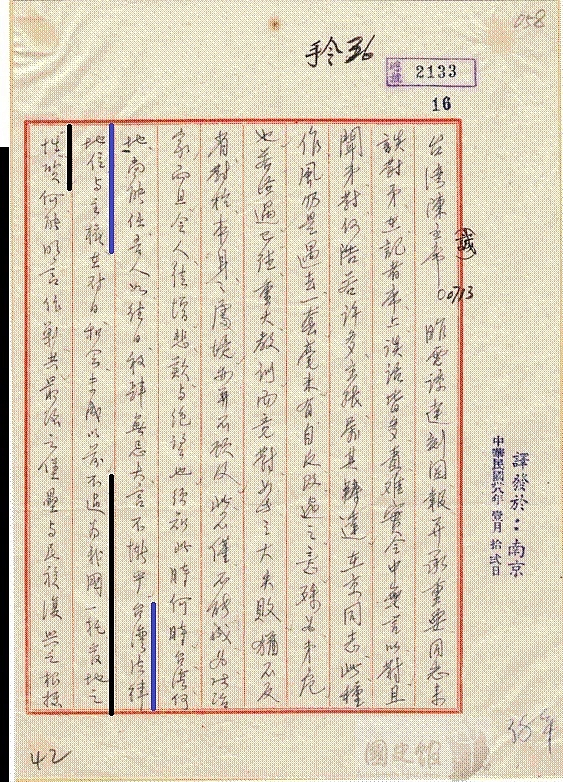 058
手令36
總號 2133
16
譯發於：南京
中華民國卅八年 壹月 拾弍日
台灣陳主席 (誠) 0073 昨電諒達刻閱報并承重要同志來
談對弟在記者席上談話皆多責難實令中無言以對且
聞弟對何浩若許多主張爲其轉達在京同志此種
作風仍是過去一套毫未有自反改過之意殊爲弟危
也若經過已往重大教訓而竟對如此之大失敗猶不反
省對於本身之處境亦再不顧及此不僅不能成爲政治
家而且令人徒增悲歎與絕望也須知此時何時台灣何
地尚能任吾人如往日放肆無忌大言不慚乎台灣法律
地位與主權在對日和會未成以前不過爲我國一託管地之
性質何能明言作剿共最後之堡壘與民族復興之根據
42
38年
國史館